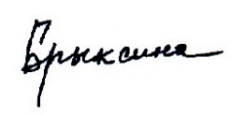 Брыксина